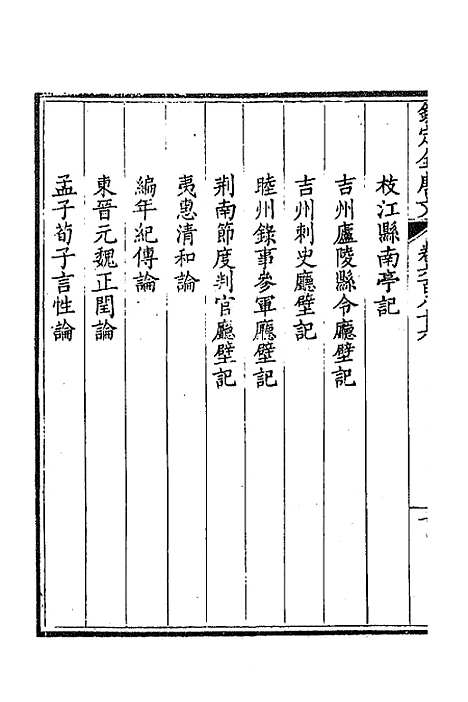 欽定全唐文 卷六百八十六
枝江縣南亭記
吉州廬陵縣令廳壁記
吉州刺史廳壁記
睦州錄事參軍廳壁記
荆南節度判官廳壁記
夷惠清和論
編年紀傳論
東晉元魏正閏論
孟子荀子言性論